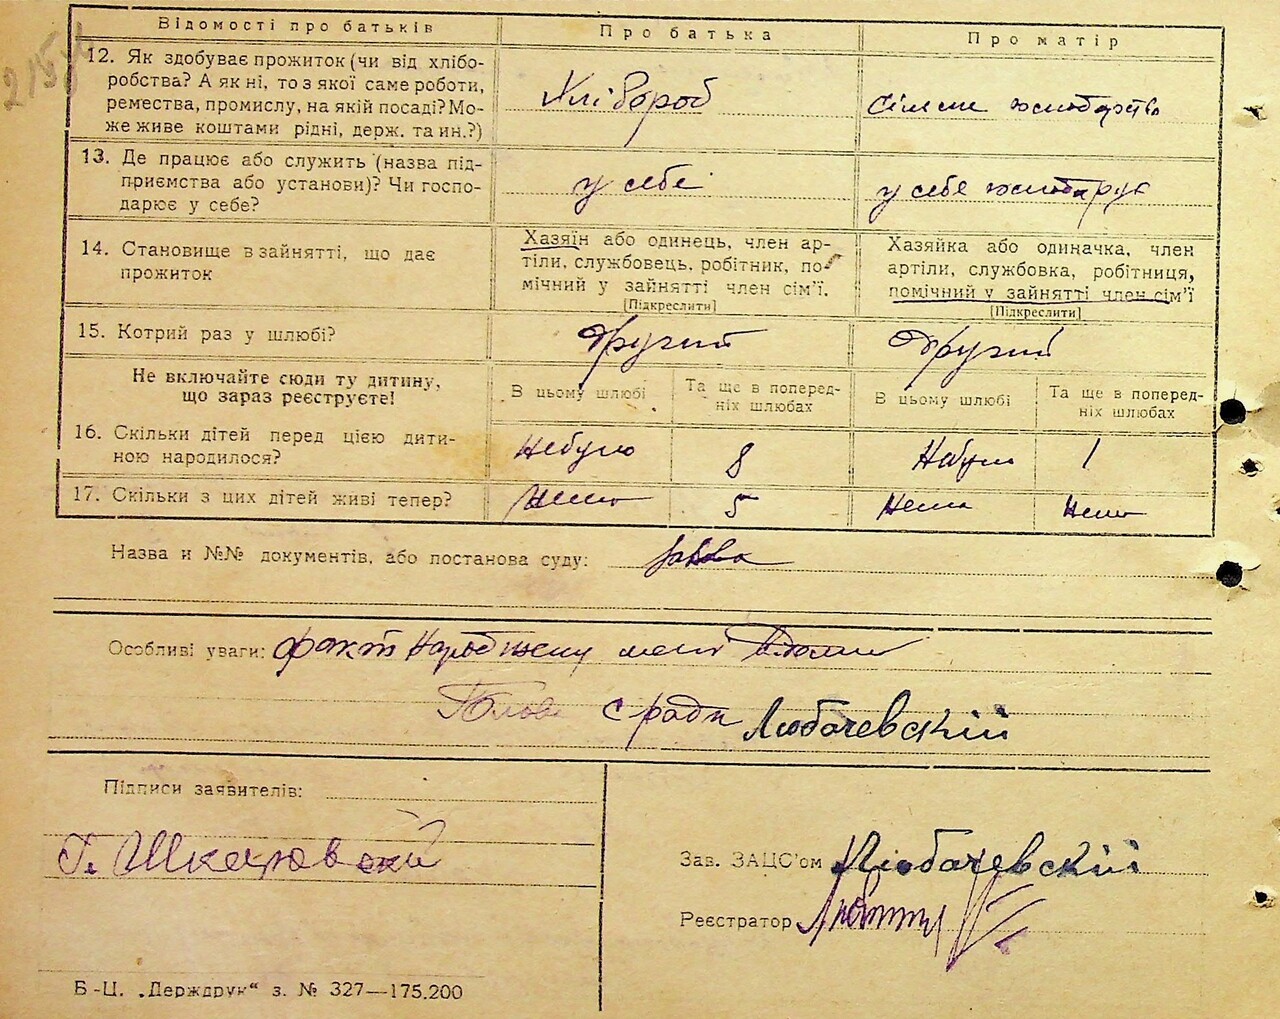 215
Відомості про батьків
Про батька
Про матір
12. Як здобуває прожиток (чи від хлібо-
робства? А як ні, то з якої саме роботи,
ремества, промислу, на якій посаді? Мо-
же живе коштами рідні, держ. та ин.?)
Хлібороб
13. Де працює або служить (назва під-
приємства або установи)? Чи госпо-
дарює у себе?
у себе
у себе
14. Становище в зайнятті, що дає
прожиток
Хазяїн або одинець, член ар-
тіли, службовець, робітник, по-
мічний у зайнятті член сім'ї.
[Підкреслити]
Хазяйка або одиначка, член
артіли, службовка, робітниця,
помічний у зайнятті член сім'ї
[Підкреслити]
15. Котрий раз у шлюбі?
Другий
Другий
Не включайте сюди ту дитину,
що зараз реєструєте!
В цьому шлюбі
Та ще в поперед-
ніх шлюбах
В цьому шлюбі
Та ще в поперед-
ніх шлюбах
16. Скільки дітей перед цією дити-
ною народилося?
Небуло
8
Небуло
1
17. Скільки з цих дітей живі тепер?
Нема
5
Нема
Нема
Назва и №№ документів, або постанова суду:
Особливі уваги: факт мені
с ради Любачевский
Підписи заявителів:
Г. Шкаровский
Зав. ЗАЦС'ом Любачевский
Реєстратор
Б-Ц. „Держдрук“ з. № 327—175.200